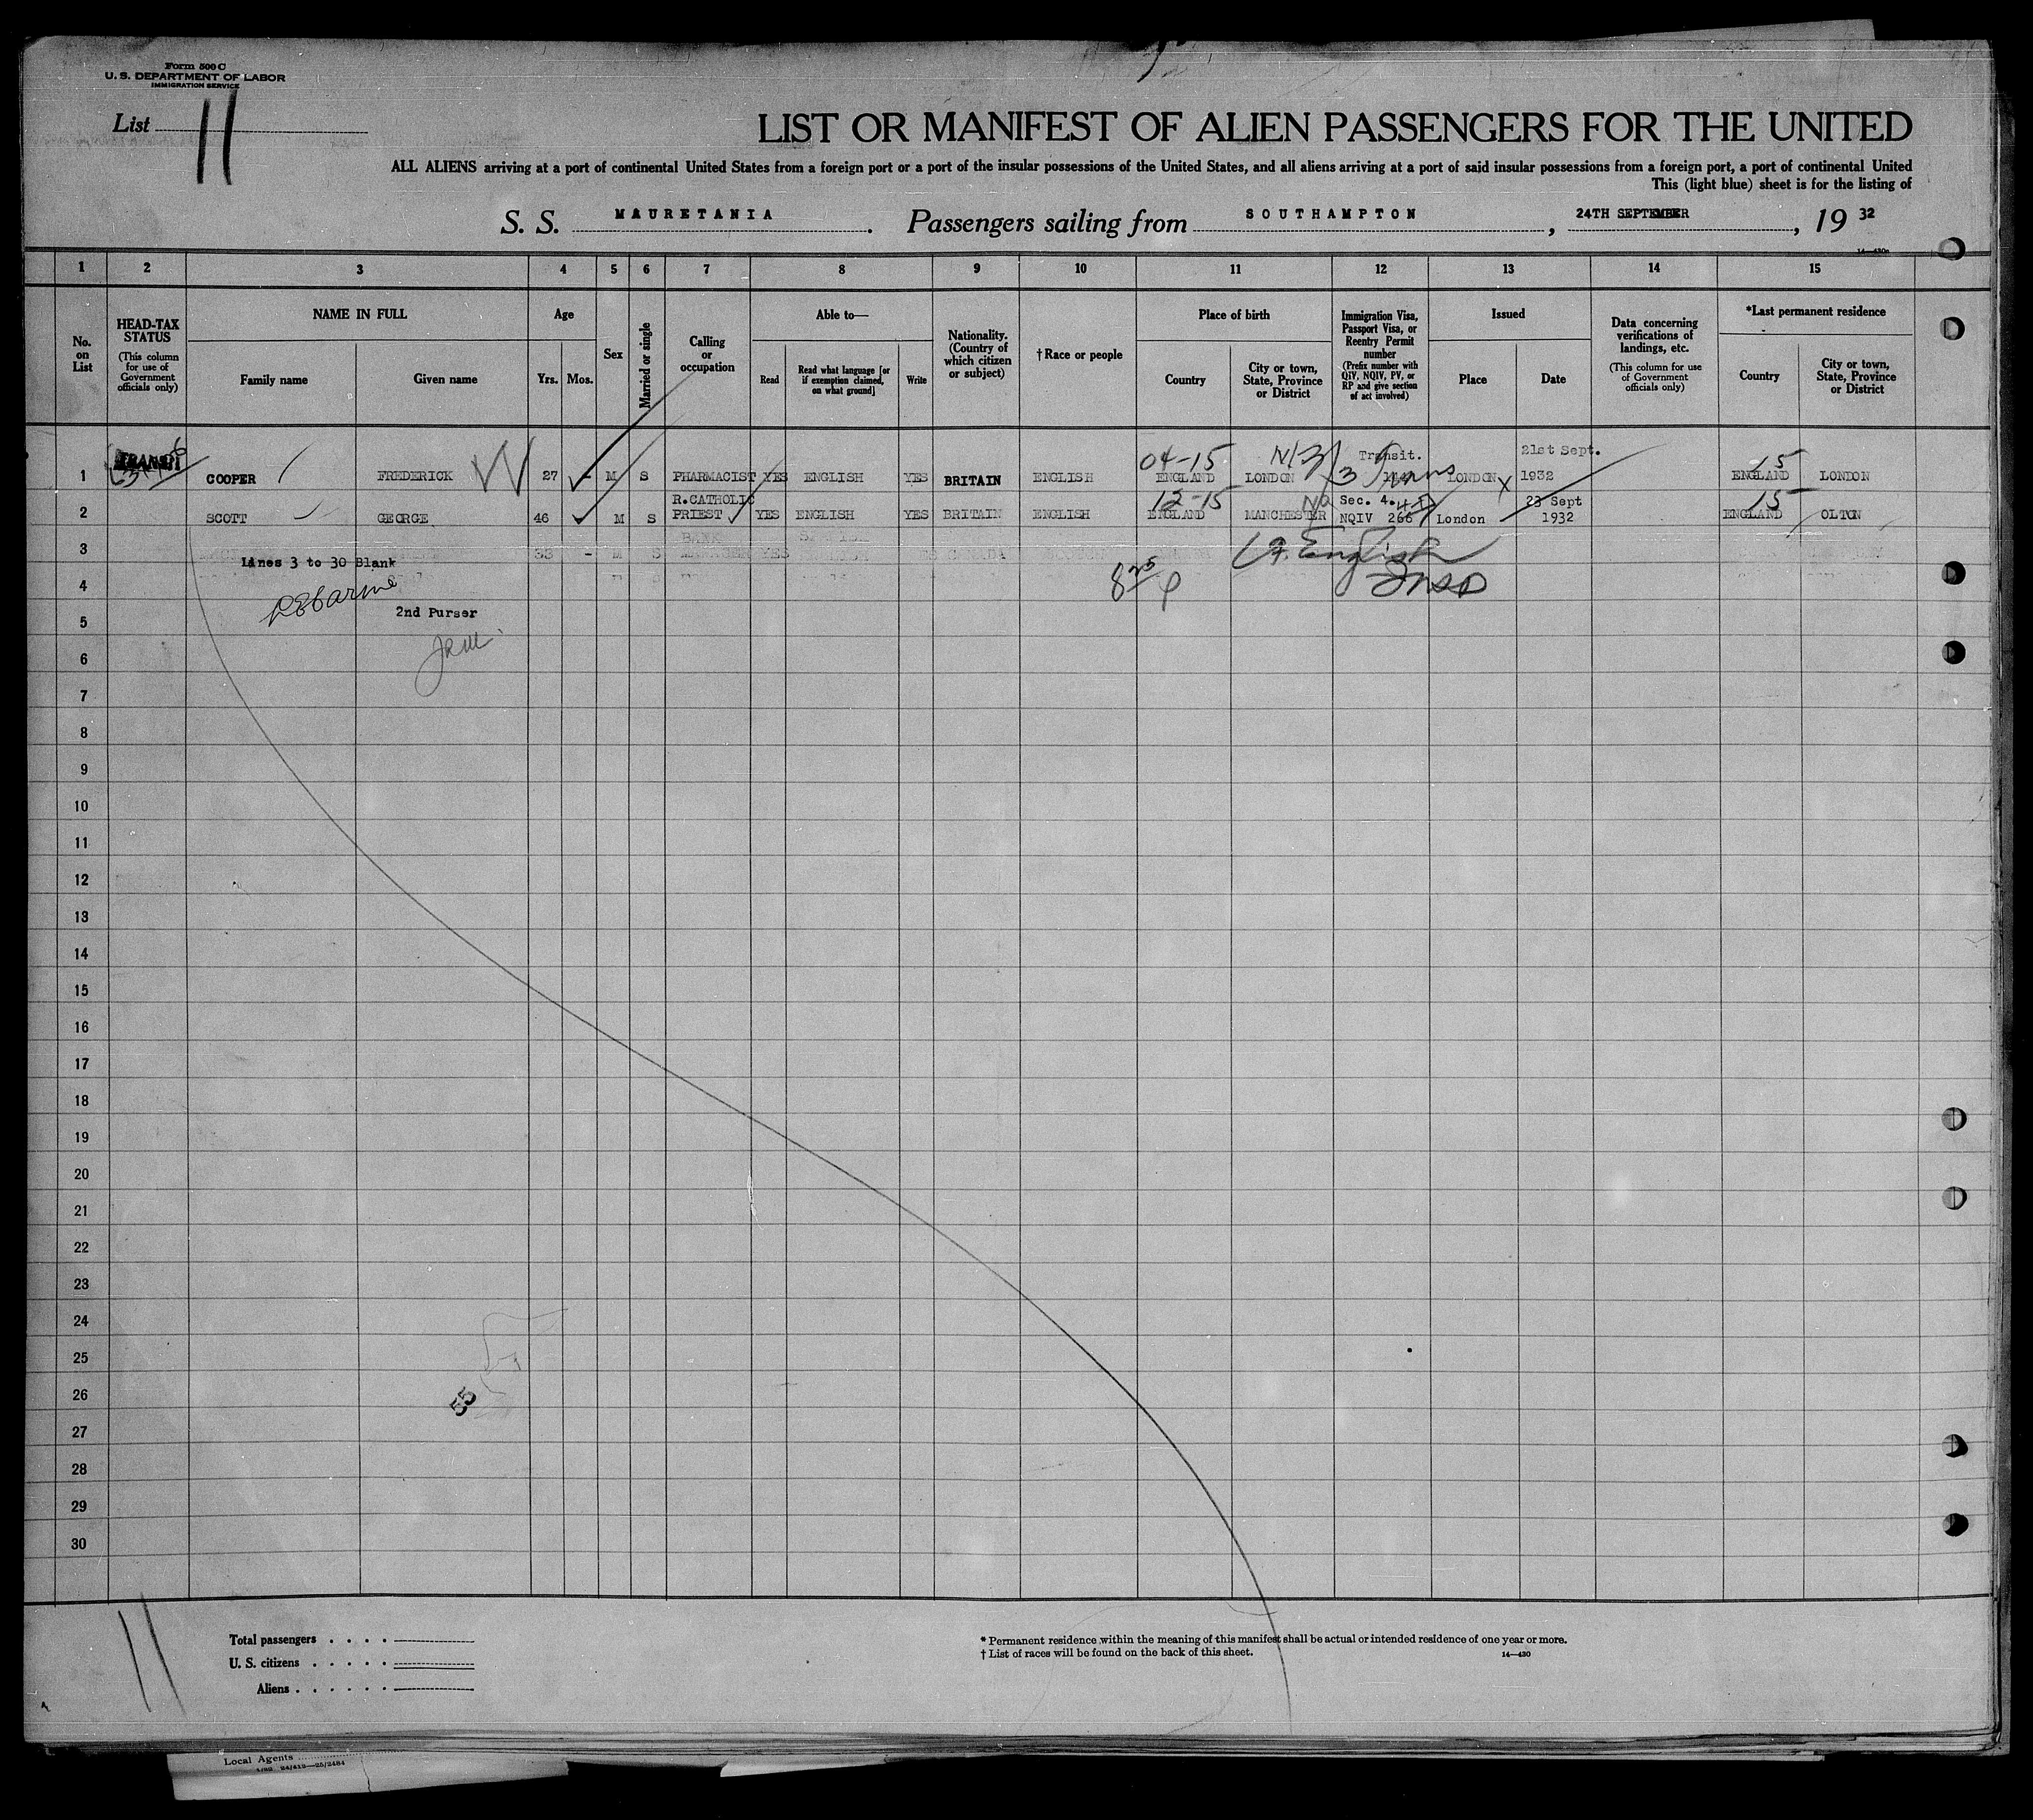 Form 500 C
U. S. DEPARTMENT OF LABOR
IMMIGRATION SERVICE
List 11
LIST OR MANIFEST OF ALIEN PASSENGERS FOR THE UNITED
ALL ALIENS arriving at a port of continental United States from a foreign port or a port of the insular possessions of the United States, and all aliens arriving at a port of said insular possessions from a foreign port, a port of continental United
This (light blue) sheet is for the listing of
S. S. MAURETANIA. Passengers sailing from SOUTHAMPTON, 24TH SEPTEMBER, 19 32
14—430a
1 2 3 4 5 6 7 8 9 10 11 12 13 14 15
No. on List
HEAD-TAX STATUS
(This column for use of Government officials only)
NAME IN FULL
Family name
Given name
Age
Yrs. Mos.
Sex
Married or single
Calling or occupation
Able to—
Read
Read what language [or if exemption claimed, on what ground]
Write
Nationality. (Country of which citizen or subject)
†Race or people
Place of birth
Country
City or town, State, Province or District
Immigration Visa, Passport Visa, or Reentry Permit number
(Prefix number with QIV, NQIV, PV, or RP and give section of act involved)
Issued
Place
Date
Data concerning verifications of landings, etc.
(This column for use of Government officials only)
*Last permanent residence
Country
City or town, State, Province or District
04-15 Transit. 21st Sept. 15
1 TRANSIT COOPER FREDERICK 27 M S PHARMACIST YES ENGLISH YES BRITAIN ENGLISH ENGLAND LONDON LONDON 1932 ENGLAND LONDON
R.CATHOLIC 12-15 Sec. 4. 23 Sept 15
2 SCOTT GEORGE 46 M S PRIEST YES ENGLISH YES BRITAIN ENGLISH ENGLAND MANCHESTER NQIV 266 London 1932 ENGLAND OLTON
3
Lines 3 to 30 Blank
4
2nd Purser
5
6
7
8
9
10
11
12
13
14
15
16
17
18
19
20
21
22
23
24
25
26
55
27
28
29
30
11
Total passengers . . . .
U. S. citizens . . . . .
Aliens . . . . . .
* Permanent residence within the meaning of this manifest shall be actual or intended residence of one year or more.
† List of races will be found on the back of this sheet.
14—430
Local Agents